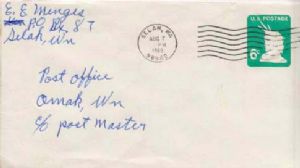 E. E. Menges
P.O. Bx 87
Selah, Wn
SELAH, WA
AUG 7
PM
1969
98942
U.S. POSTAGE
6¢
Post office
Omak, Wn
c/o post Master